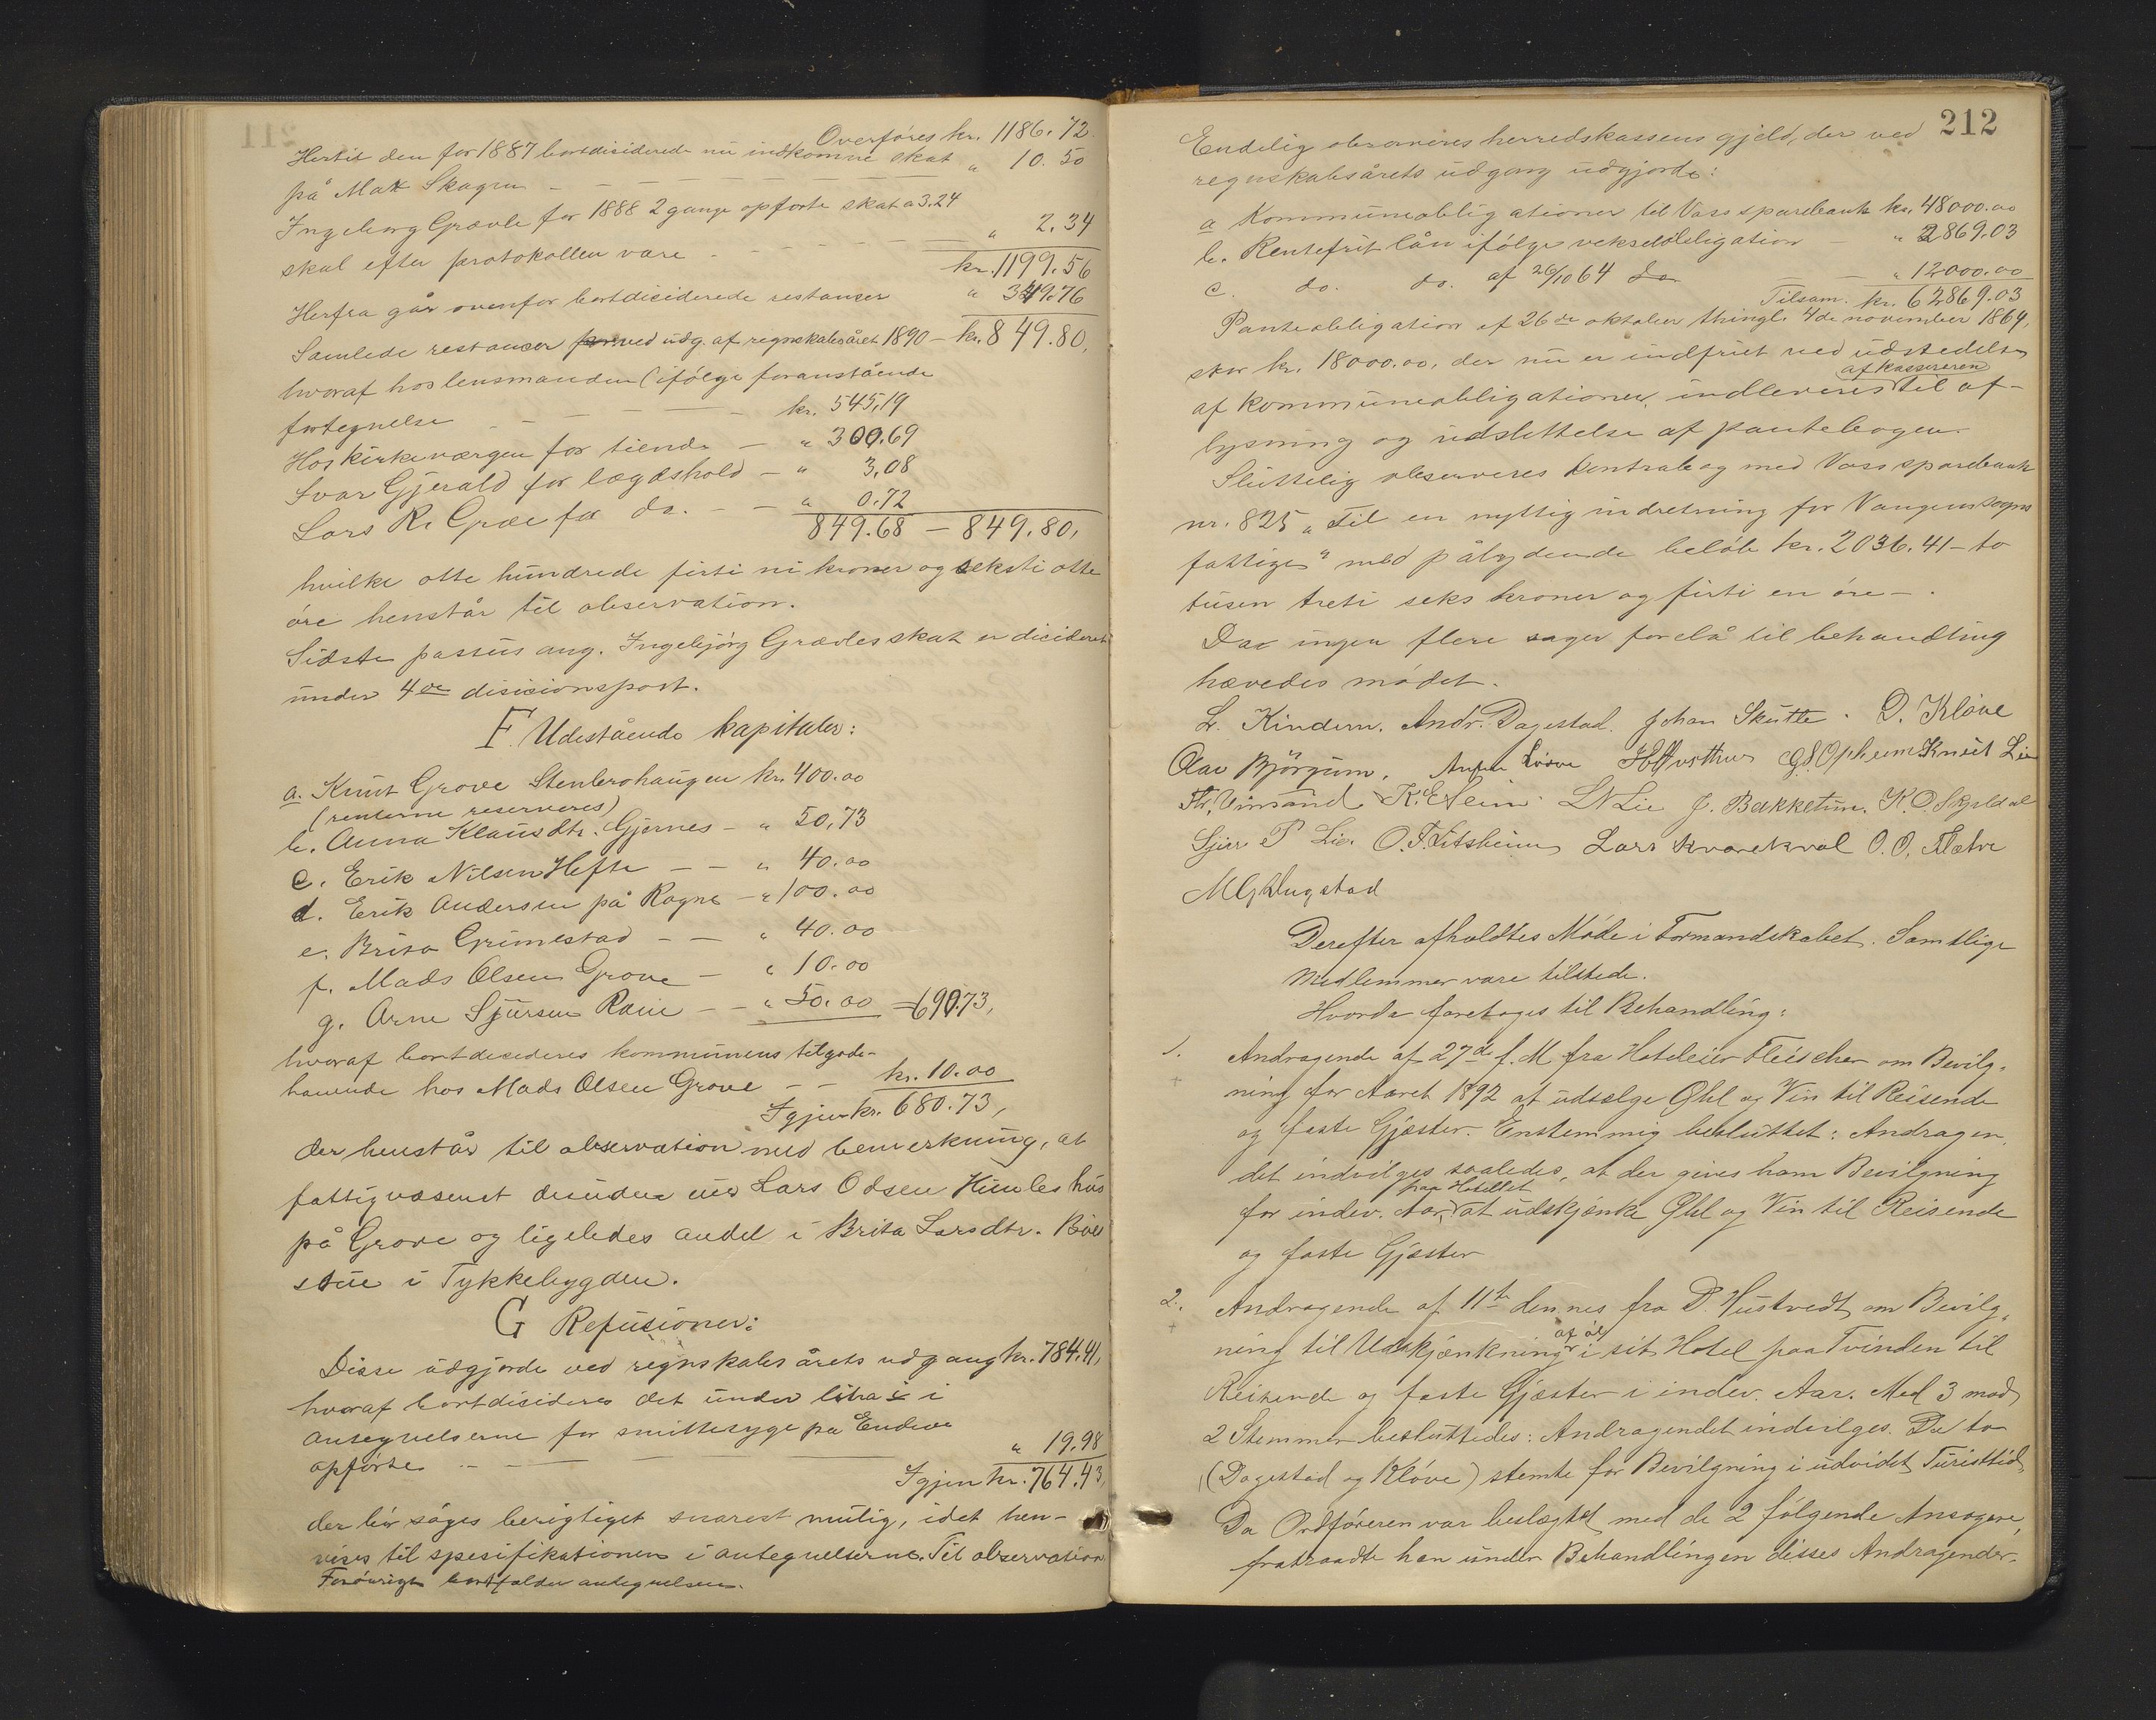 Overføres kr. 1186.72
Hertil den for 1887 bortdisiderede nu indkomne skat " 10.50
på Matt Skagen
Ingeborg Grævle for 1888 2 gange opførte skat a 3.24
skal efter protokollen være " 2.34
kr. 1199.56
Herfra går ovenfor bortdisiderede restanser " 349.76
Samlede restanser ved udg. af regnskabsåret 1890 – kr. 849.80,
hvoraf hos lensmanden (ifølge foranstående
fortegnelse kr. 545,19
Hos kirkeværgen for tiende – " 300.69
Ivar Gjerald for lægdshold – " 3,08
Lars R. Græe for do. – " 0.72
849.68 – 849.80,
hvilke otte hundrede firti ni kroner og seksti otte
øre henstår til observation.
Sidste passus ang. Ingebjørg Grævles skat er disideret
under 4de disisionspost.
F. Udestående kapitaler:
a. Knut Grove Stenbrohaugen kr. 400.00
(renterne reserveres)
b. Anna Klausdtr. Gjernes – " 50,73
c. Erik Nilsen Hefte – – " 40.00
d. Erik Andersen på Rogne – " 100.00
e. Brita Grimestad – – " 40.00
f. Mads Olsen Grove – " 10.00
g. Arne Sjursen Røie – – " 50.00 = 690.73,
hvoraf bortdesideres kommunens tilgode-
havende hos Mads Olsen Grove – – kr. 10.00
Igjen kr. 680.73,
der henstår til observation med bemerkning, at
fattigvæsenet desuden eier Lars Odsen Hinles hus
på Grove og ligeledes andel i Brita Larsdtr. Bøes
stue i Tykkebygden.
G Refusioner:
Disse udgjorde ved regnskabsårets udgang kr. 784,41,
hvoraf bortdisideres det under litra i i
antegnelserne for smittesyge på Endeve
opførte " 19.98
Igjen kr. 764.43,
der bør søges berigtiget snarest mulig, idet hen-
vises til spesifikationen i antegnelserne. Til observation
Forøvrigt bortfalder antegnelsen.
212
Endelig observeres herredskassens gjeld, der ved
regnskabsårets udgang udgjorde:
a Kommuneobligationer til Voss sparebank kr. 48000.00
b. Rentefrit lån ifølge vekselobligation – " 2869.03
c. do. do. af 26/10 64 do. – " 12000.00
Tilsam. kr. 62869.03
Panteobligation af 26de oktober thingl. 4de november 1864,
stor kr. 18000.00, der nu er indfriet ved udstedelse
af kassereren
af kommuneobligationer, indleveres til af-
lysning og udslettelse af pantebogen.
Sluttelig observeres kontrabog med Voss sparebank
nr. 825 "Til en nyttig indretning for Vangens sogns
fattige" med pålydende beløb kr. 2036.41 – to
tusen treti seks kroner og firti en øre – .
Da ingen flere sager forelå til behandling
hævedes mødet.
L. Kindem. Andr. Dagestad. Johan Skutle. D. Kløve
Olav Bjørgum, Løvve G S Opheim Knut Lie
Vinsand K. E Seim L N Lie J. Bakketun. K. O. Skjeldal
Sjur P Lie. O. T. Litsheim Lars Kvarekval O. O. Mætve
M G Dugstad
Derefter afholdtes Møde i Formandskabet. Samtlige
Medlemmer vare tilstede.
Hvorda foretoges til Behandling:
1. Andragende af 27de f. M fra Hoteleier Fleischer om Bevilg-
ning for Aaret 1892 at udsælge Øhl og Vin til Reisende
og faste Gjæster. Enstemmig besluttet: Andragen-
det indvilges saaledes, at der gives ham Bevilgning
paa Hotellet
for indev. Aar, at udskjenke Øhl og Vin til Reisende
og faste Gjæster
2. Andragende af 11te dennes fra D. Hustvedt om Bevilg-
af øl
ning til Udskjænkning i sit Hotel paa Tvinden til
Reisende og faste Gjæster i indev. Aar. Med 3 mod
2 Stemmer besluttedes: Andragendet indvilges. De to
(Dagestad og Kløve) stemte for Bevilgning i udvidet Turisttid.
Da Ordføreren var beslægtet med de 2 følgende Ansøgere,
fratraadte han under Behandlingen disses Andragender.